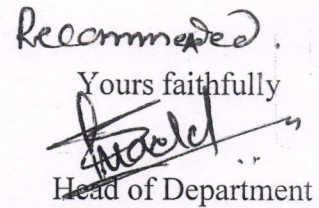 Recommended.
Yours faithfully
Head of Department